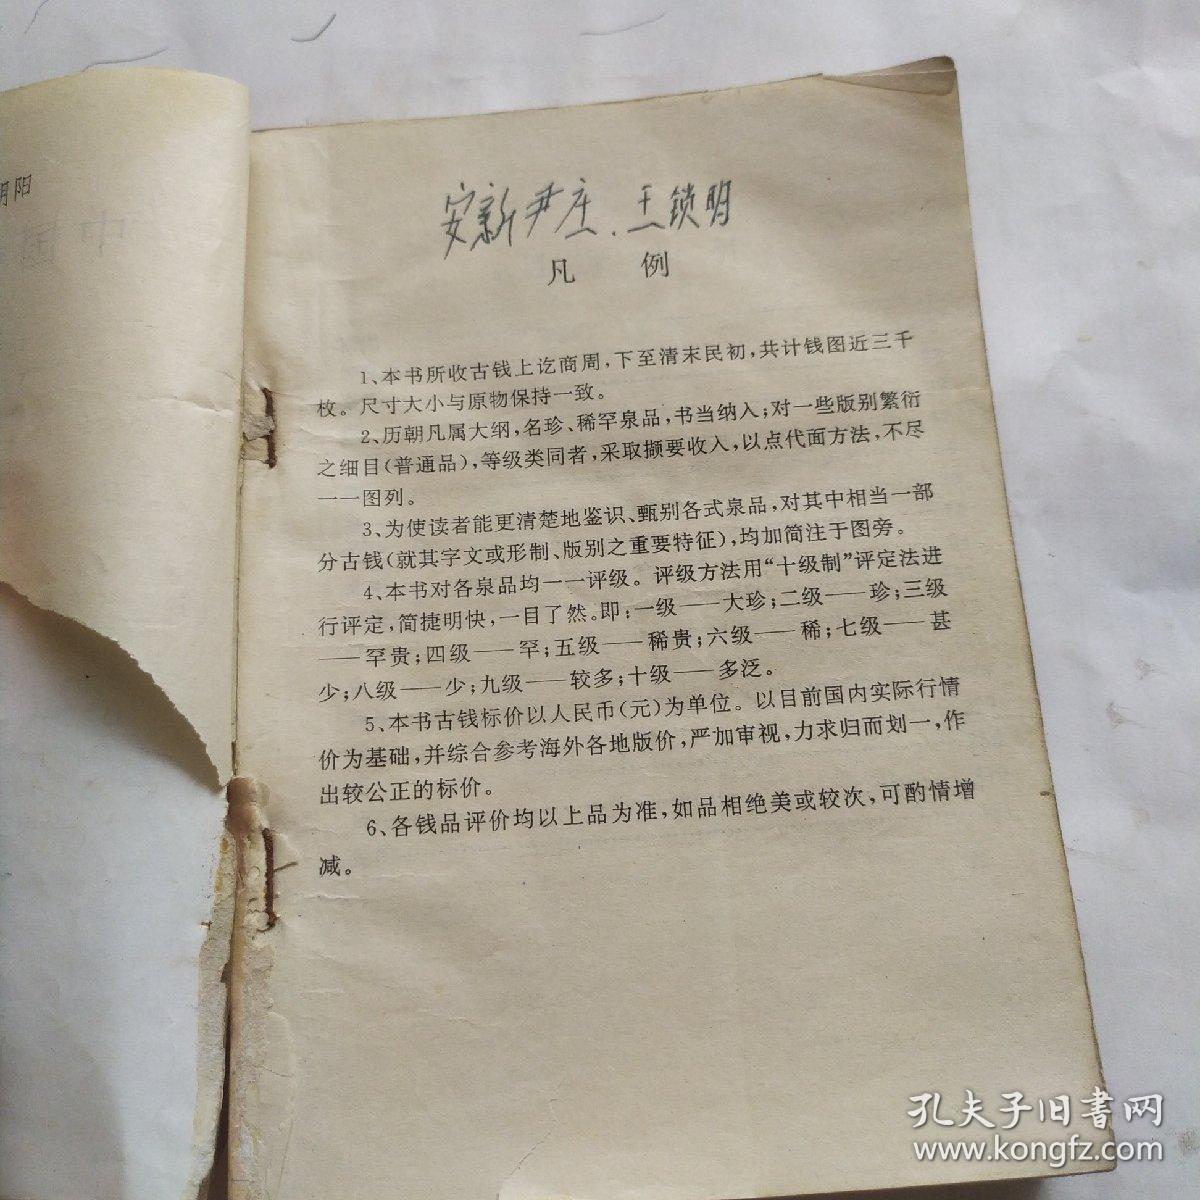 明阳
安新尹庄、王锁明
凡　例
1、本书所收古钱上讫商周，下至清末民初，共计钱图近三千
枚。尺寸大小与原物保持一致。
2、历朝凡属大纲，名珍、稀罕泉品，书当纳入；对一些版别繁衍
之细目(普通品)，等级类同者，采取撷要收入，以点代面方法，不尽
一一图列。
3、为使读者能更清楚地鉴识、甄别各式泉品，对其中相当一部
分古钱(就其字文或形制、版别之重要特征)，均加简注于图旁。
4、本书对各泉品均一一评级。评级方法用“十级制”评定法进
行评定，简捷明快，一目了然。即：一级——大珍；二级——珍；三级
——罕贵；四级——罕；五级——稀贵；六级——稀；七级——甚
少；八级——少；九级——较多；十级——多泛。
5、本书古钱标价以人民币(元)为单位。以目前国内实际行情
价为基础，并综合参考海外各地版价，严加审视，力求归而划一，作
出较公正的标价。
6、各钱品评价均以上品为准，如品相绝美或较次，可酌情增
减。
孔夫子旧书网
www.kongfz.com